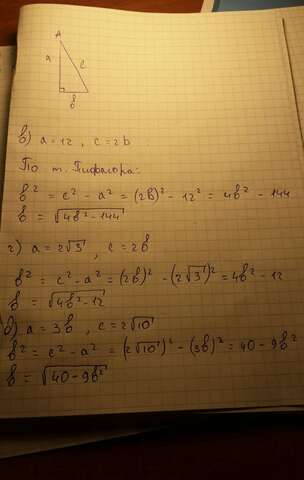 A
a
c
b
в) a = 12 , c = 2b
По т. Пифагора:
b² = c² - a² = (2b)² - 12² = 4b² - 144
b = √(4b² - 144)
г) a = 2√3 , c = 2b
b² = c² - a² = (2b)² - (2√3)² = 4b² - 12
b = √(4b² - 12)
д) a = 3b , c = 2√10
b² = c² - a² = (2√10)² - (3b)² = 40 - 9b²
b = √(40 - 9b²)